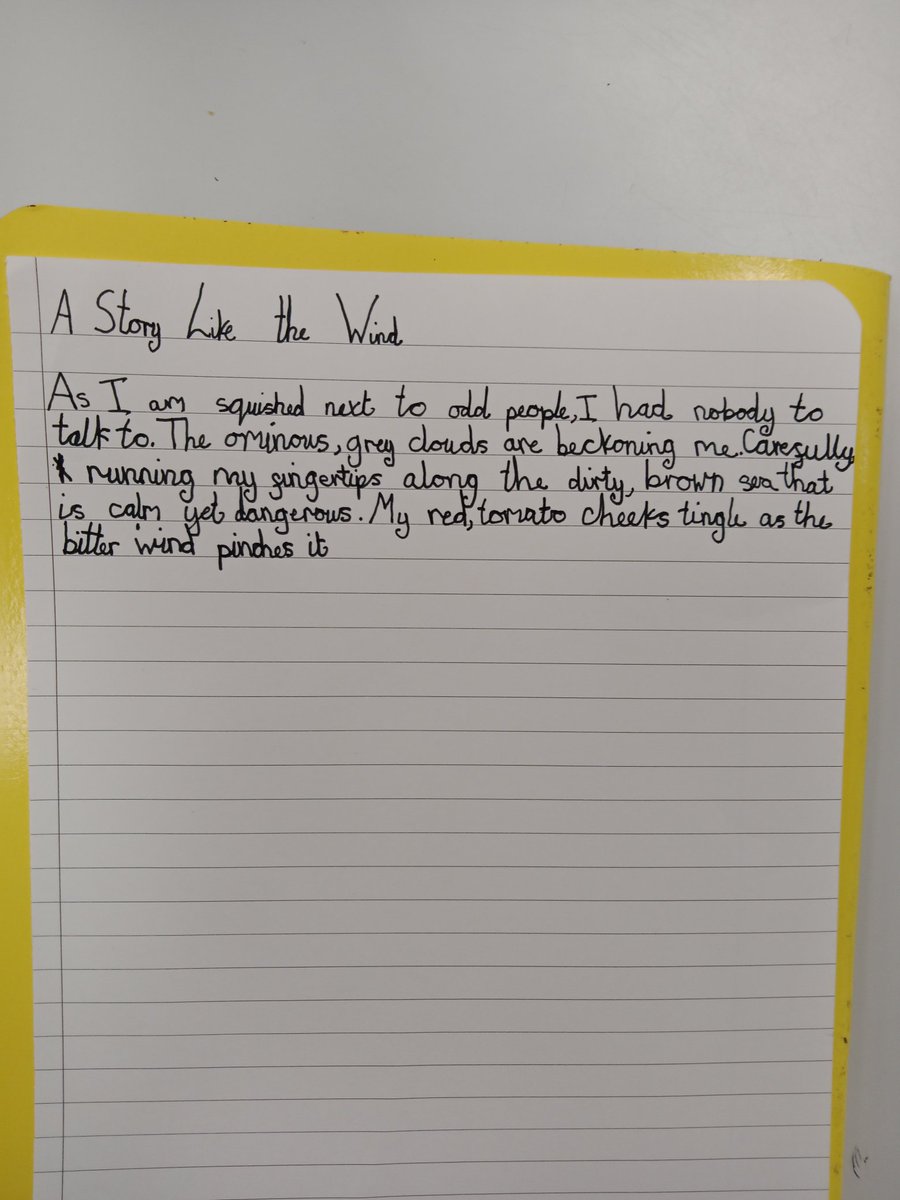 A Story Like the Wind
As I am squished next to odd people, I had nobody to
talk to. The ominous, grey clouds are beckoning me. Carefully
running my fingertips along the dirty, brown sea that
is calm yet dangerous. My red, tomato cheeks tingle as the
bitter wind pinches it